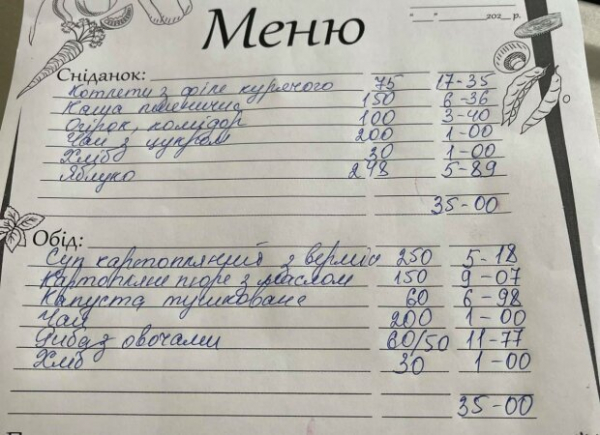 Меню
"__"______ 202__ р.
Сніданок:
Котлети з філе курячого 75 17-35
Каша пшенична 150 6-36
Огірок, помідор 100 3-40
Чай з цукром 200 1-00
Хліб 30 1-00
Яблуко 248 5-89
35-00
Обід:
Суп картопляний з верміш 250 5-18
Картопляне пюре з маслом 150 9-07
Капуста тушкована 60 6-98
Чай 200 1-00
Риба з овочами 60/50 11-77
Хліб 30 1-00
35-00